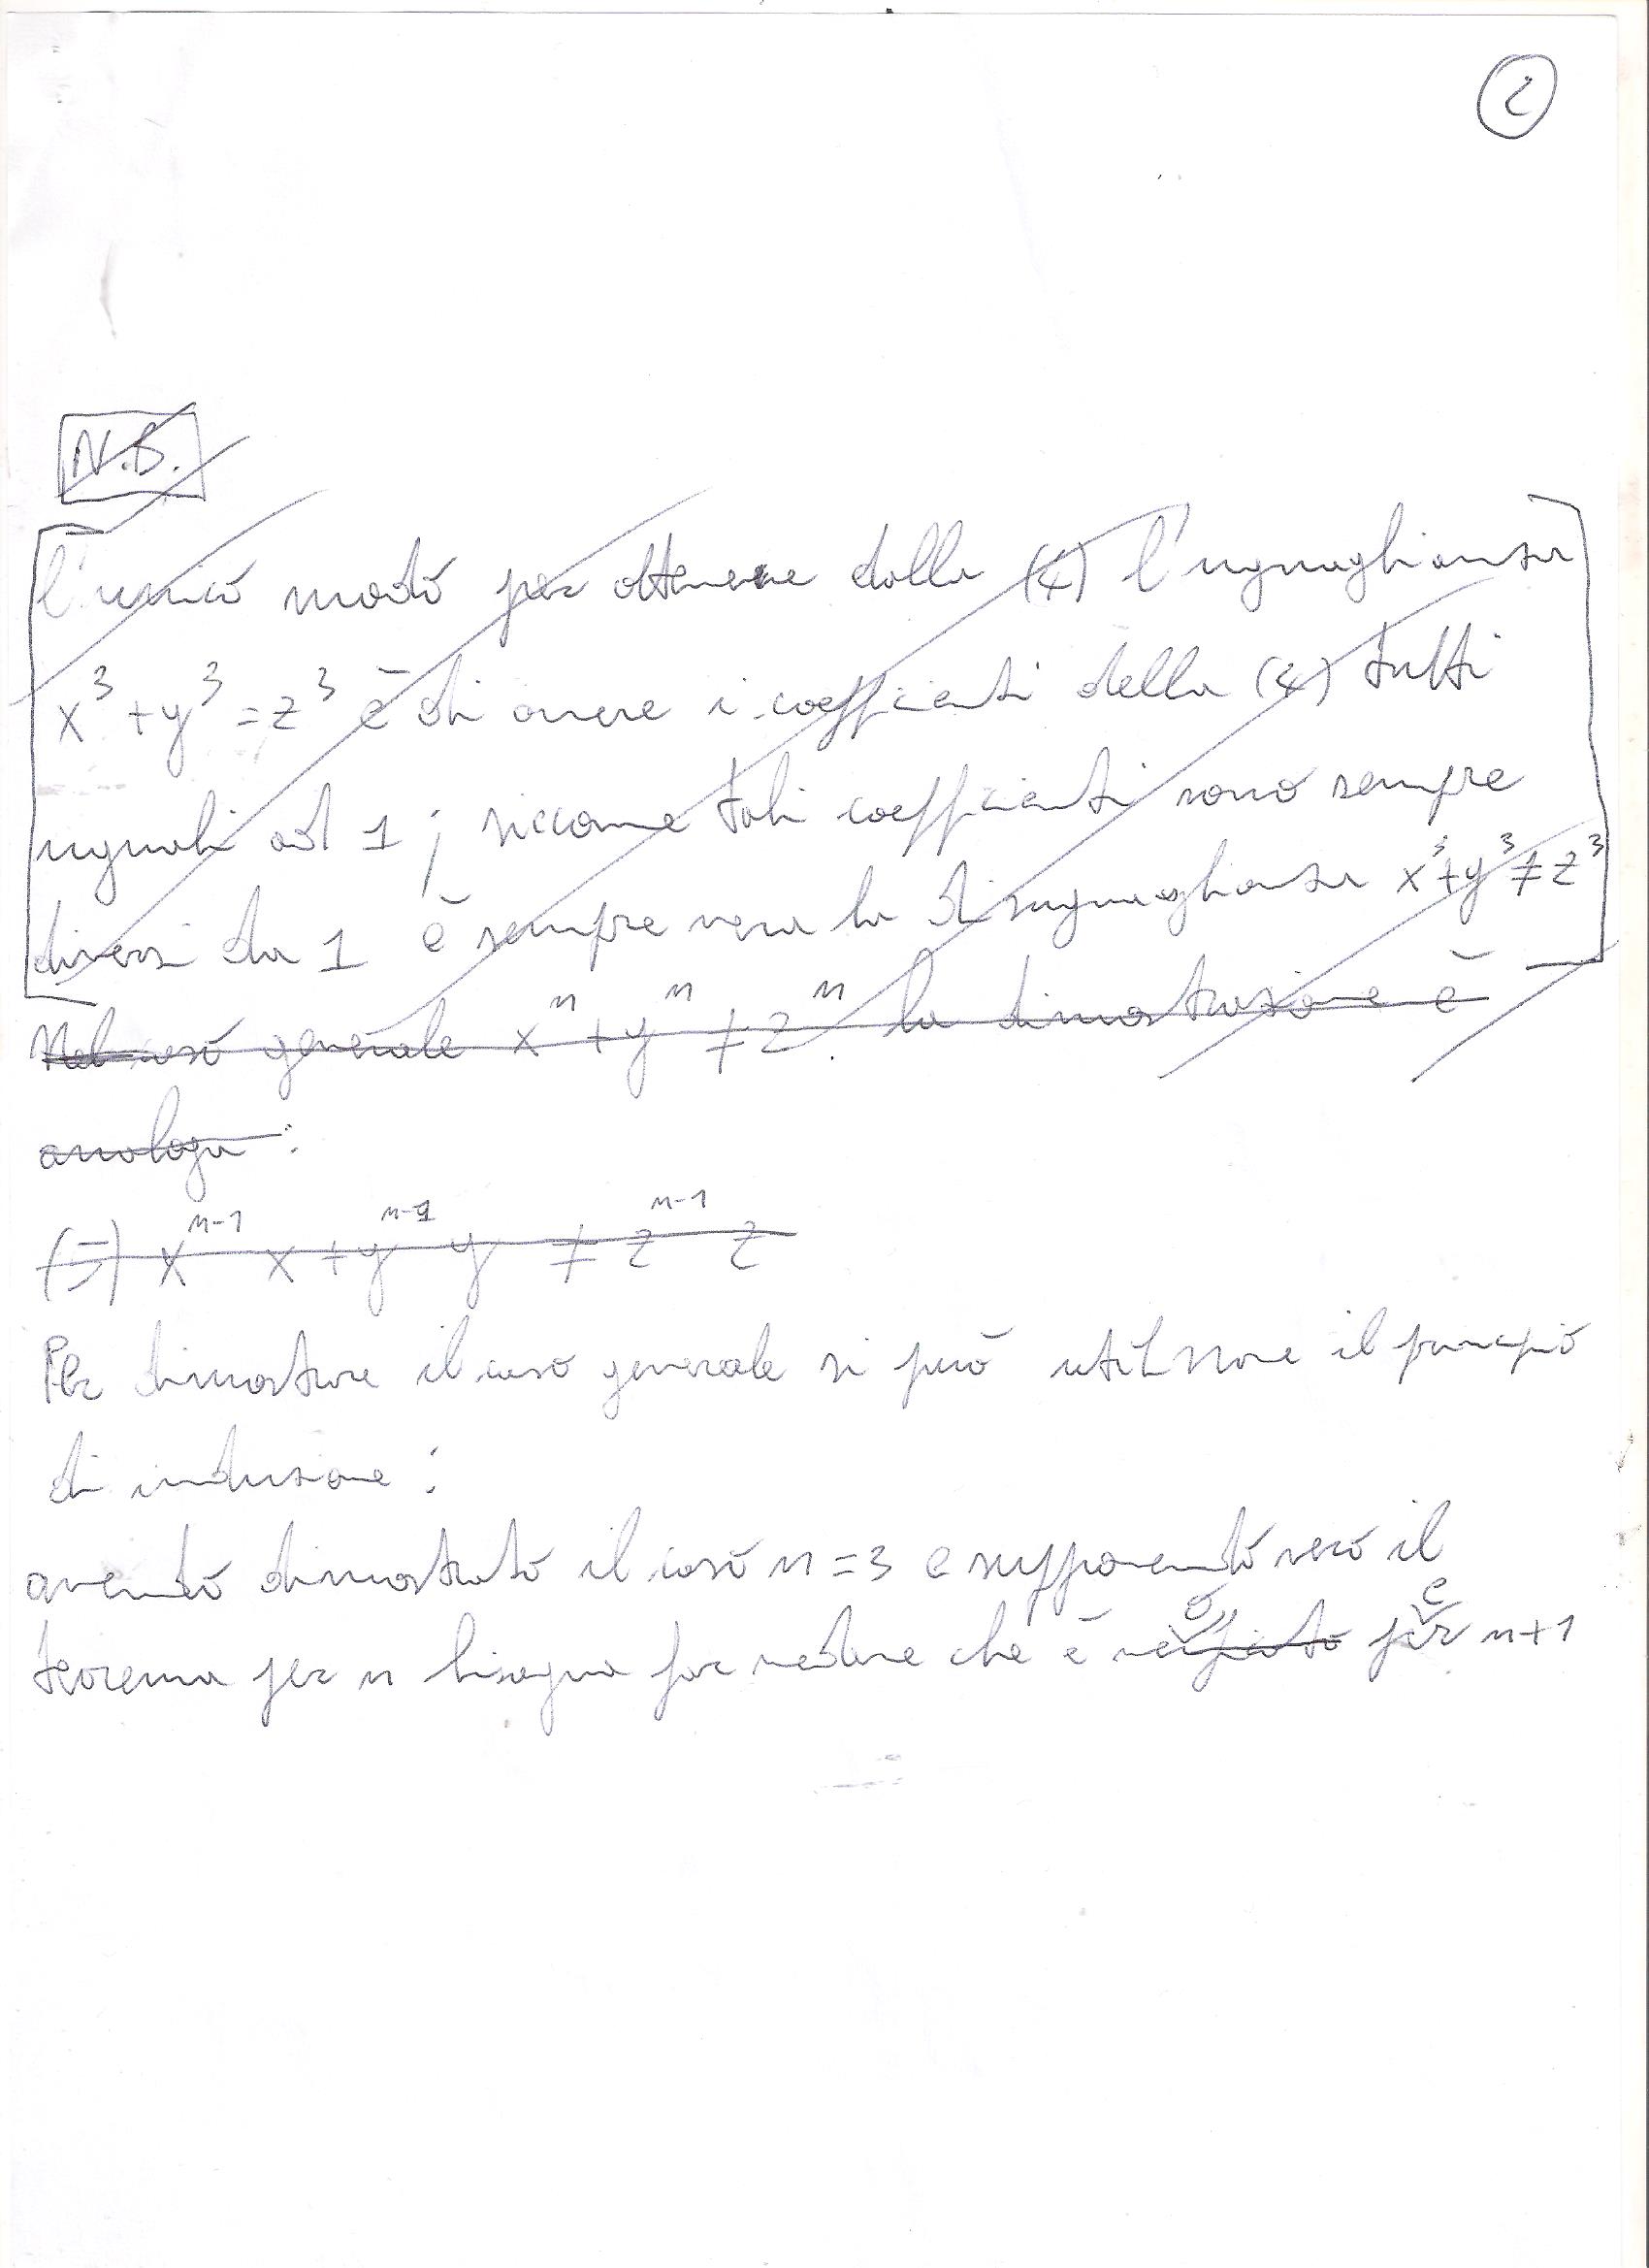 2
N.B.
l'unico modo per ottenere dalla (4) l'uguaglianza
x³ + y³ = z³ è di avere i coefficienti della (4) tutti
uguali ad 1 ; siccome tali coefficienti sono sempre
diversi da 1 è sempre vera la disuguaglianza x³+y³≠z³
Nel caso generale xⁿ + yⁿ ≠ zⁿ la dimostrazione è
analoga :
(=) xⁿ⁻¹ x + yⁿ⁻¹ y ≠ zⁿ⁻¹ z
Per dimostrare il caso generale si può utilizzare il principio
di induzione :
avendo dimostrato il caso n = 3 e supponendo vero il
teorema per n bisogna far vedere che è per n+1